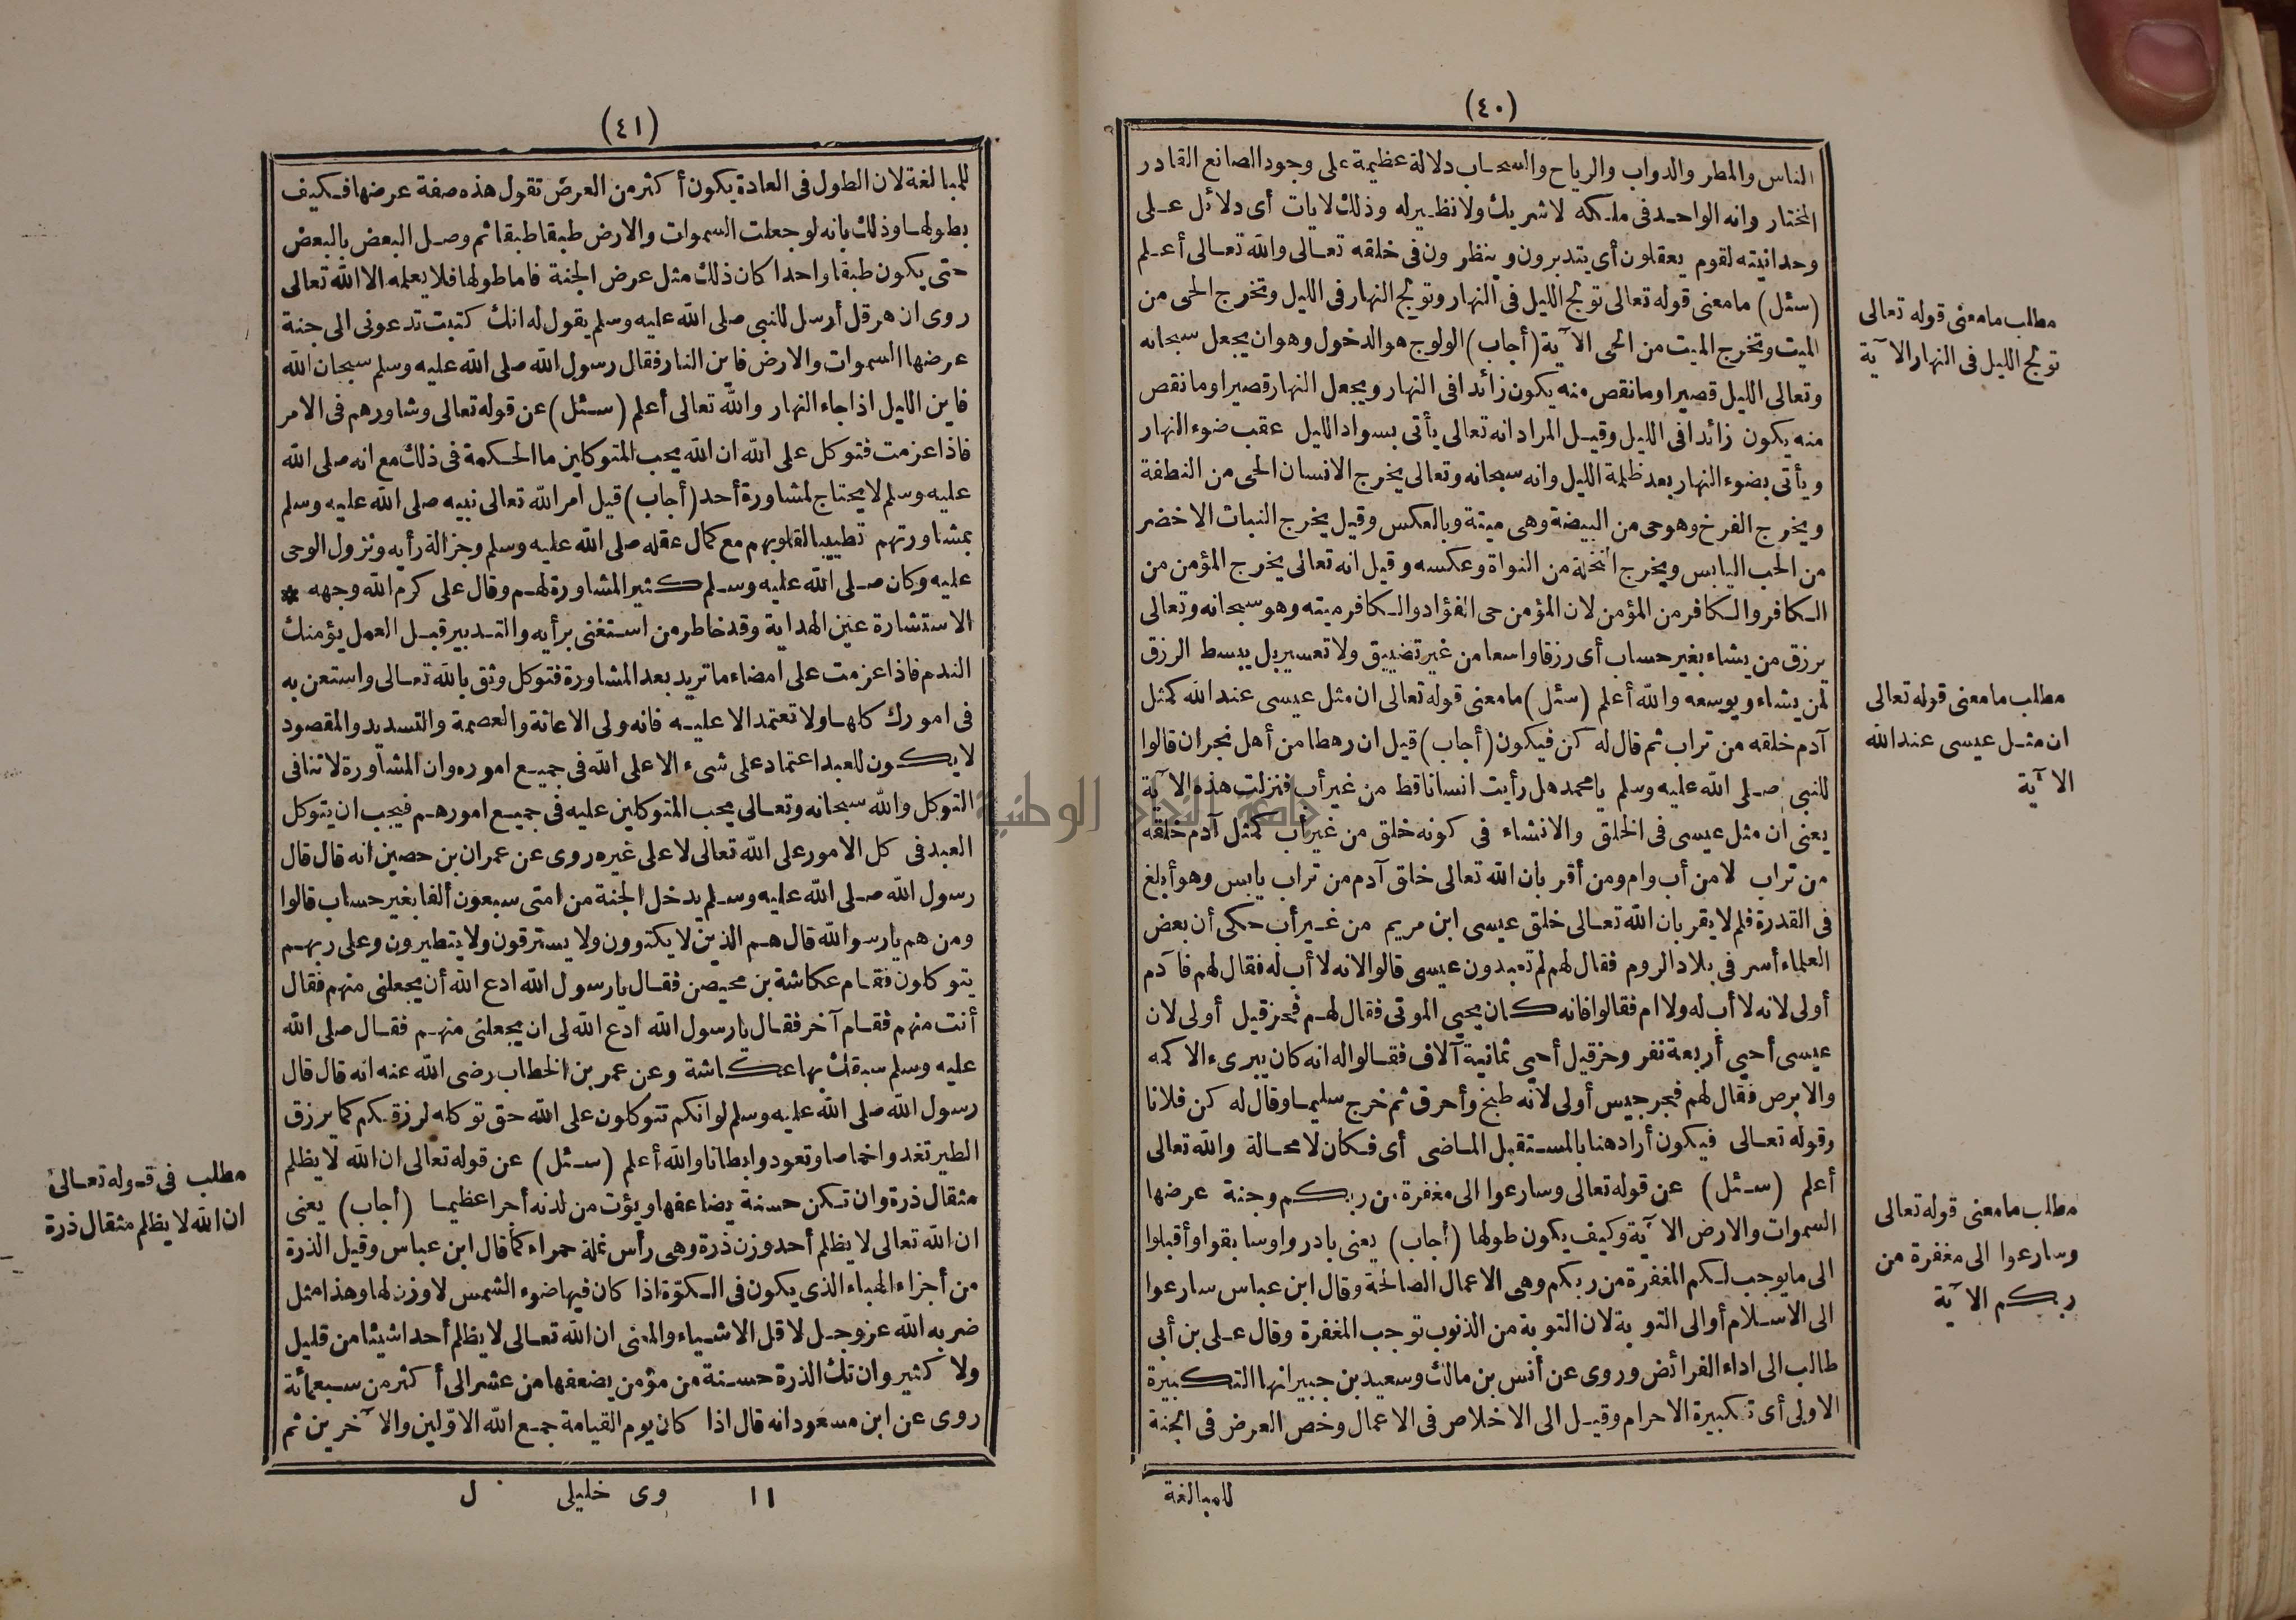 (٤٠)
الناس والمطر والدواب والرياح والسحاب دلالة عظيمة على وجود الصانع القادر
المختار وانه الواحد فى ملكه لا شريك ولا نظير له وذلك لآيات أى دلائل على
وحدانيته لقوم يعقلون أى يتدبرون وينظرون فى خلقه تعالى والله تعالى أعلم
(سئل) ما معنى قوله تعالى تولج الليل فى النهار وتولج النهار فى الليل وتخرج الحى من
الميت وتخرج الميت من الحى الآية (أجاب) الولوج هو الدخول وهو ان يجعل سبحانه
وتعالى الليل قصيرا وما نقص منه يكون زائدا فى النهار ويجعل النهار قصيرا وما نقص
منه يكون زائدا فى الليل وقيل المراد انه تعالى يأتى بسواد الليل عقب ضوء النهار
ويأتى بضوء النهار بعد ظلمة الليل وانه سبحانه وتعالى يخرج الانسان الحى من النطفة
ويخرج الفرخ وهو حى من البيضة وهى ميتة وبالعكس وقيل يخرج النبات الاخضر
من الحب اليابس ويخرج النخلة من النواة وعكسه وقيل انه تعالى يخرج المؤمن من
الكافر والكافر من المؤمن لان المؤمن حى الفؤاد والكافر ميته وهو سبحانه وتعالى
يرزق من يشاء بغير حساب أى رزقا واسعا من غير تضييق ولا تعسير بل يبسط الرزق
لمن يشاء ويوسعه والله أعلم (سئل) ما معنى قوله تعالى ان مثل عيسى عند الله كمثل
آدم خلقه من تراب ثم قال له كن فيكون (أجاب) قيل ان رهطا من أهل نجران قالوا
للنبى صلى الله عليه وسلم يا محمد هل رأيت انسانا قط من غير أب فنزلت هذه الآية
يعنى ان مثل عيسى فى الخلق والانشاء فى كونه خلق من غير أب كمثل آدم خلقه
من تراب لا من أب وام ومن أقر بان الله تعالى خلق آدم من تراب يابس وهو أبلغ
فى القدرة فلم لا يقر بان الله تعالى خلق عيسى ابن مريم من غير أب حكى أن بعض
العلماء أسر فى بلاد الروم فقال لهم لم تعبدون عيسى قالوا لانه لا أب له فقال لهم فآدم
أولى لانه لا أب له ولا ام فقالوا فانه كان يحيى الموتى فقال لهم فحزقيل أولى لان
عيسى أحيى أربعة نفر وحزقيل أحيى ثمانية آلاف فقالوا له انه كان يبرىء الاكمه
والابرص فقال لهم فجرجيس أولى لانه طبخ وأحرق ثم خرج سليما وقال له كن فلانا
وقوله تعالى فيكون أراد هنا بالمستقبل الماضى أى فكان لا محالة والله تعالى
أعلم (سئل) عن قوله تعالى وسارعوا الى مغفرة من ربكم وجنة عرضها
السموات والارض الآية وكيف يكون طولها (أجاب) يعنى بادروا وسابقوا وأقبلوا
الى ما يوجب لكم المغفرة من ربكم وهى الاعمال الصالحة وقال ابن عباس سارعوا
الى الاسلام أو الى التوبة لان التوبة من الذنوب توجب المغفرة وقال على بن أبى
طالب الى اداء الفرائض وروى عن أنس بن مالك وسعيد بن جبير انها التكبيرة
الاولى أى تكبيرة الاحرام وقيل الى الاخلاص فى الاعمال وخص العرض فى الجنة
للمبالغة
مطلب ما معنى قوله تعالى
تولج الليل فى النهار الآية
مطلب ما معنى قوله تعالى
ان مثل عيسى عند الله
الآية
مطلب ما معنى قوله تعالى
وسارعوا الى مغفرة من
ربكم الآية
(٤١)
للمبالغة لان الطول فى العادة يكون أكثر من العرض تقول هذه صفة عرضها فكيف
بطولها وذلك بانه لو جعلت السموات والارض طبقا طبقا ثم وصل البعض بالبعض
حتى يكون طبقا واحدا كان ذلك مثل عرض الجنة فاما طولها فلا يعلمه الا الله تعالى
روى ان هرقل أرسل للنبى صلى الله عليه وسلم يقول له انك كتبت تدعونى الى جنة
عرضها السموات والارض فاين النار فقال رسول الله صلى الله عليه وسلم سبحان الله
فاين الليل اذا جاء النهار والله تعالى أعلم (سئل) عن قوله تعالى وشاورهم فى الامر
فاذا عزمت فتوكل على الله ان الله يحب المتوكلين ما الحكمة فى ذلك مع انه صلى الله
عليه وسلم لا يحتاج لمشاورة أحد (أجاب) قيل امر الله تعالى نبيه صلى الله عليه وسلم
بمشاورتهم تطييبا لقلوبهم مع كمال عقله صلى الله عليه وسلم وجزالة رأيه ونزول الوحى
عليه وكان صلى الله عليه وسلم كثير المشاورة لهم وقال على كرم الله وجهه *
الاستشارة عين الهداية وقد خاطر من استغنى برأيه والتدبير قبل العمل يؤمنك
الندم فاذا عزمت على امضاء ما تريد بعد المشاورة فتوكل وثق بالله تعالى واستعن به
فى امورك كلها ولا تعتمد الا عليه فانه ولى الاعانة والعصمة والتسديد والمقصود
لا يكون للعبد اعتماد على شىء الا على الله فى جميع اموره وان المشاورة لا تنافى
التوكل والله سبحانه وتعالى يحب المتوكلين عليه فى جميع امورهم فيجب ان يتوكل
العبد فى كل الامور على الله تعالى لا على غيره روى عن عمران بن حصين انه قال قال
رسول الله صلى الله عليه وسلم يدخل الجنة من امتى سبعون ألفا بغير حساب قالوا
ومن هم يا رسول الله قال هم الذين لا يكتوون ولا يسترقون ولا يتطيرون وعلى ربهم
يتوكلون فقام عكاشة بن محيصن فقال يا رسول الله ادع الله أن يجعلنى منهم فقال
أنت منهم فقام آخر فقال يا رسول الله ادع الله لى ان يجعلنى منهم فقال صلى الله
عليه وسلم سبقك بها عكاشة وعن عمر بن الخطاب رضى الله عنه انه قال قال
رسول الله صلى الله عليه وسلم لو انكم تتوكلون على الله حق توكله لرزقكم كما يرزق
الطير تغدو اخماصا وتعود وابطانا والله أعلم (سئل) عن قوله تعالى ان الله لا يظلم
مثقال ذرة وان تكن حسنة يضاعفها ويؤت من لدنه أجرا عظيما (أجاب) يعنى
ان الله تعالى لا يظلم أحد وزن ذرة وهى رأس نملة حمراء كما قال ابن عباس وقيل الذرة
من أجزاء الهباء الذى يكون فى الكوّة اذا كان فيها ضوء الشمس لا وزن لها وهذا مثل
ضربه الله عز وجل لاقل الاشياء والمعنى ان الله تعالى لا يظلم أحدا شيئا من قليل
ولا كثير وان تك الذرة حسنة من مؤمن يضعفها من عشر الى أكثر من سبعمائة
روى عن ابن مسعود انه قال اذا كان يوم القيامة جمع الله الاوّلين والآخرين ثم
١١ وى خليلى ل
مطلب فى قوله تعالى
ان الله لا يظلم مثقال ذرة
جامعة النجاح الوطنية